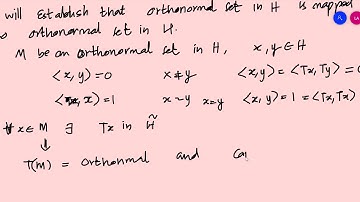 will Establish that orthonormal set in H is mapped
orthonormal set in H.
M be an orthonormal set in H, x, y ∈ H
<x, y> = 0 x ≠ y <x, y> = <Tx, Ty> = 0
x) = 1 x ~ y x = y <x, y> = 1 = <Tx, Tx>
∀ x ∈ M ∃ Tx in H̃
↓
T(M) = orthonormal and